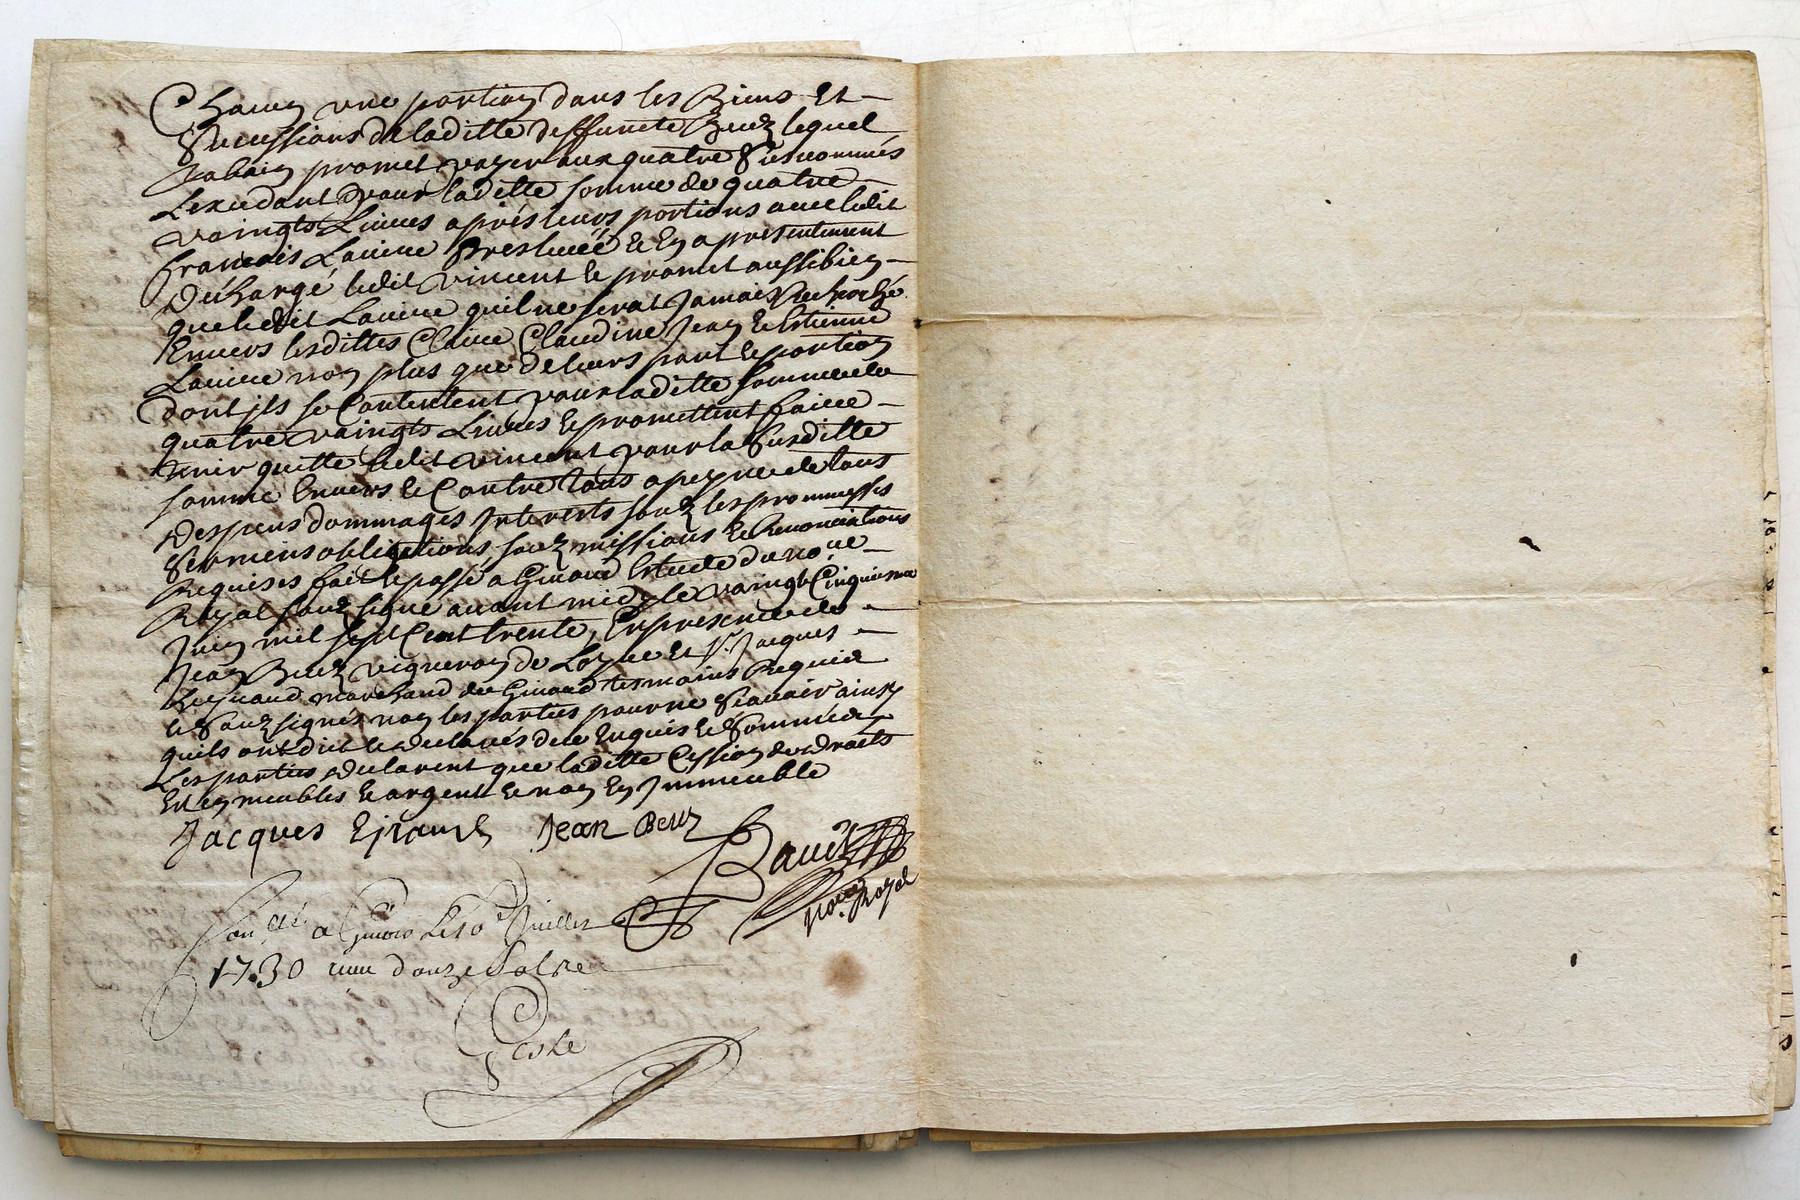 Chacun une portion dans les Biens Et
Successions de laditte deffuncte Beuz lequel
promet payer aux quatre Susnommés
L'excedant pour laditte somme de quatre
vaingts Livres après leurs portions avec ledit
François Lavive et En a presentement
Déchargé ledit vincent et promet aussi bien
que ledit Lavive quil ne serat Jamais Recherché
Envers lesdittes Claire Claudine Jean et Estienne
Lavive non plus que de leurs part et portion
dont jls se Contentent pour laditte somme de
quatre vaingts Livres et promettent faire
tenir quitte ledit vincent pour la Susditte
somme Envers et Contre tous a peyne de tous
despens dommages Interests souz les promesses
Sermens obligations souz missions et Renonciations
Requises fait et passé a Givord Estude du no.re
Royal souz signé avant midy le vaingt Cinquiesme
Juin mil sept Cent trente, En presence de
Jean Beuz vigneron de Loyre et S.r Jacques
marchand de Givord tesmoins Requis
et Souz signés non les parties pour ne Scavoir ainsy
quils ont dit et declarés de ce Enquis et Sommées
Les parties declarent que laditte Cession de droits
Est en meubles et argent et non En Jmmeuble
Jacques Jean Beuz
no.re Royal
a Givord Le 10e Juillet
1730 douze sols